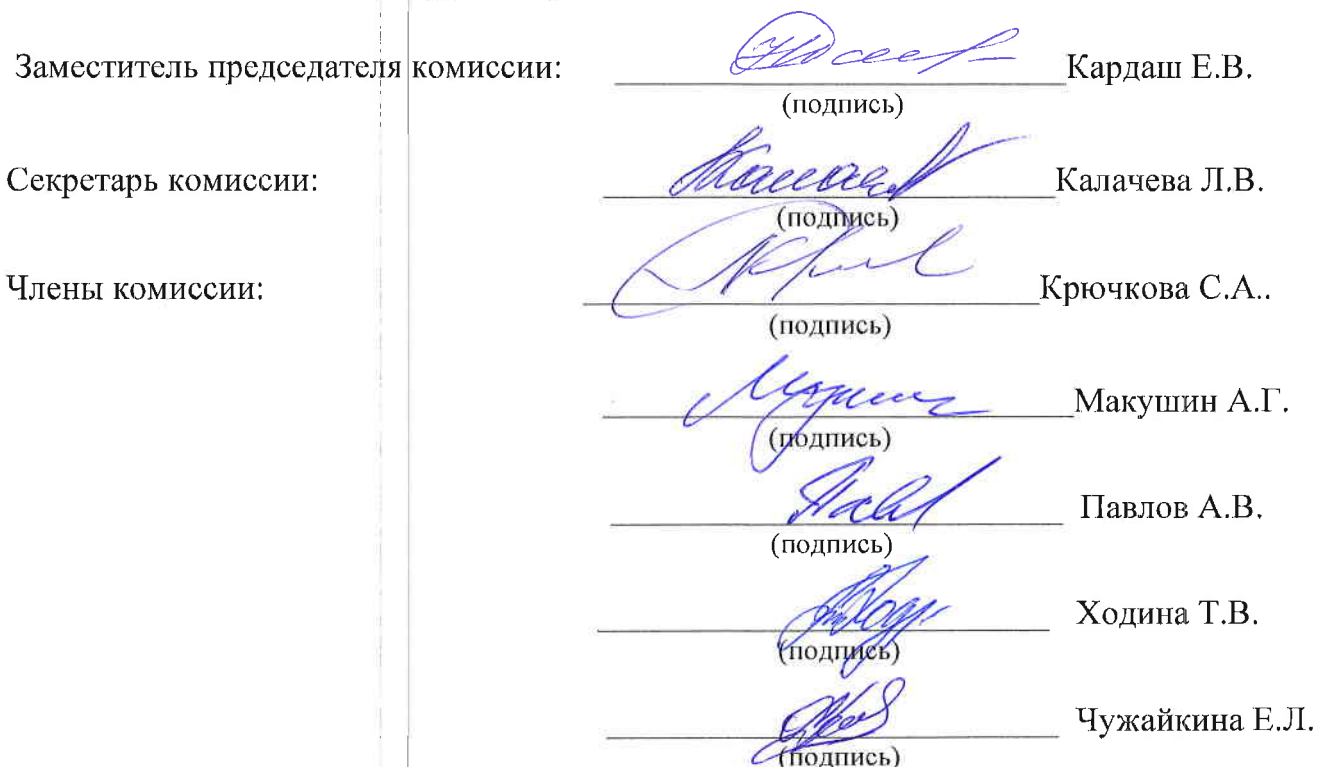 Заместитель председателя комиссии: Кардаш Е.В.
(подпись)
Секретарь комиссии: Калачева Л.В.
(подпись)
Члены комиссии: Крючкова С.А..
(подпись)
Макушин А.Г.
(подпись)
Павлов А.В.
(подпись)
Ходина Т.В.
(подпись)
Чужайкина Е.Л.
(подпись)